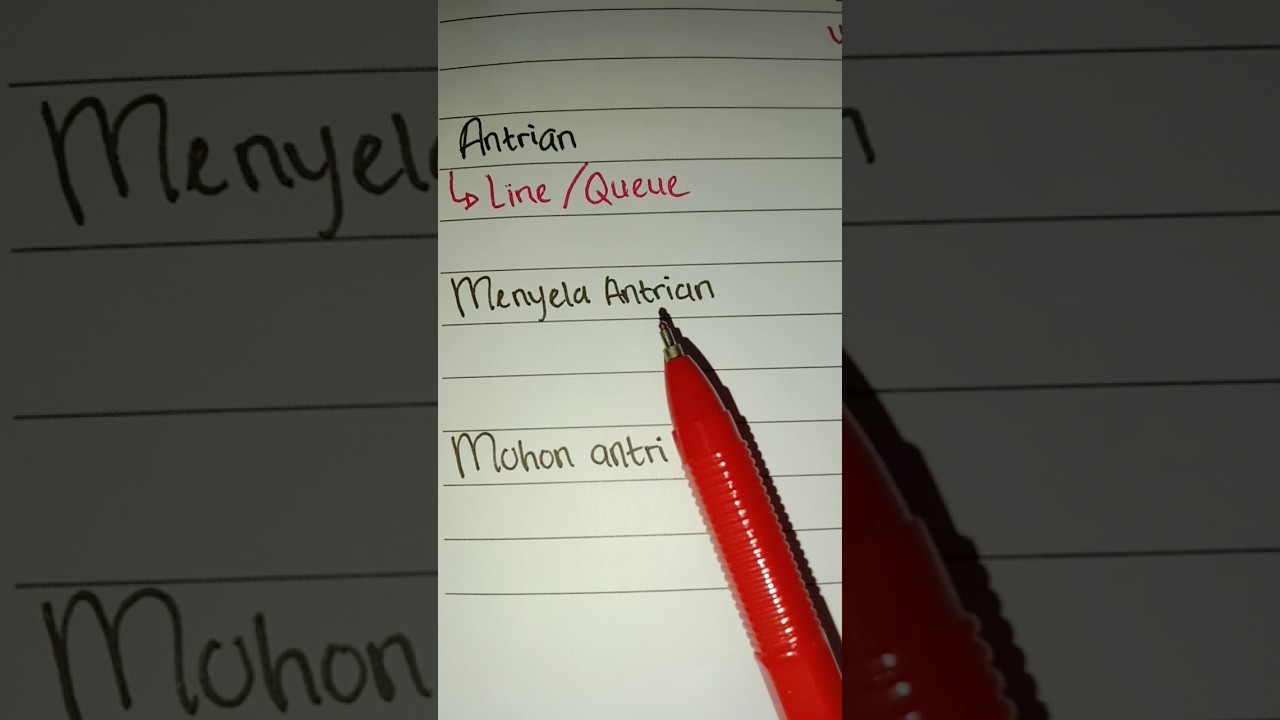 Antrian
↳ Line/Queue
Menyela Antrian
Mohon antri